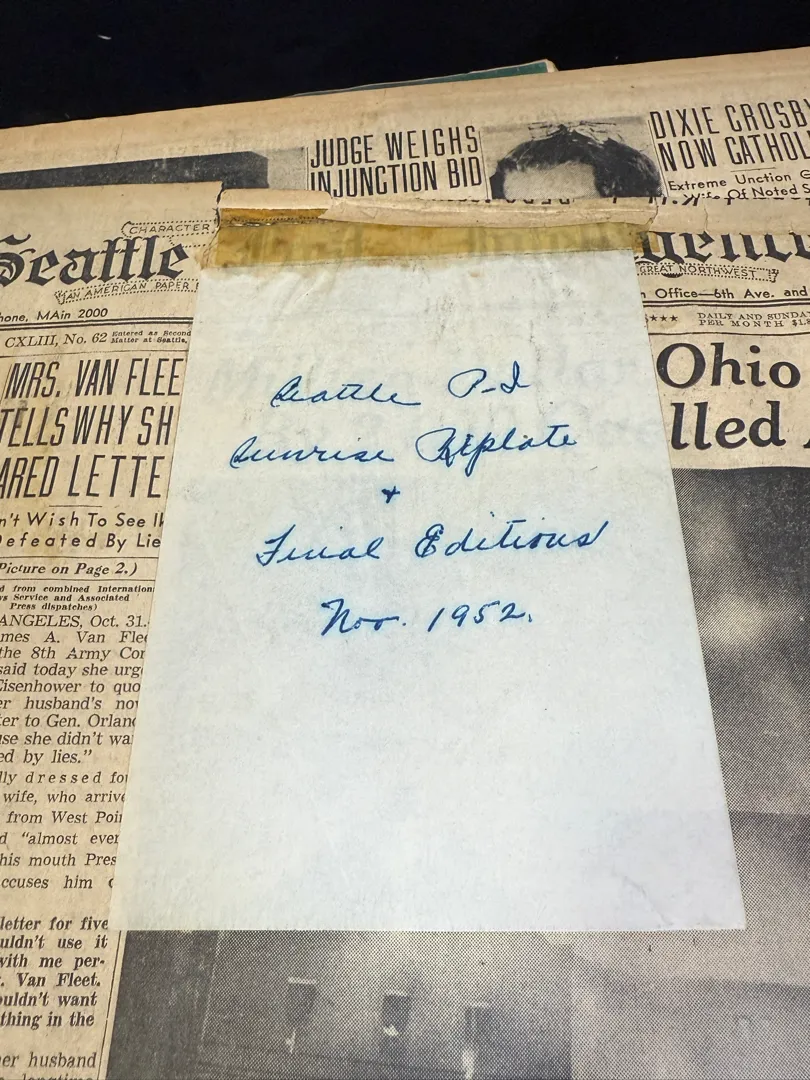 JUDGE WEIGHS
INJUNCTION BID
DIXIE CROSB
NOW CATHOL
Extreme Unction G
Of Noted S
CHARACTER
Seattle
AN AMERICAN PAPER
GREAT NORTHWEST
hone, MAin 2000
Office—6th Ave. and
CXLIII, No. 62
Entered as Second
Matter at Seattle,
DAILY AND SUNDA
PER MONTH
MRS. VAN FLEE
TELLS WHY SH
ARED LETTE
n't Wish To See Ik
Defeated By Lie
Picture on Page 2.)
d from combined Internation
ws Service and Associated
Press dispatches)
ANGELES, Oct. 31.
mes A. Van Flee
the 8th Army Cor
said today she urg
Eisenhower to quo
er husband's no
ter to Gen. Orland
use she didn't wa
ed by lies."
lly dressed fo
wife, who arrive
from West Poin
d "almost ever
his mouth Pres
ccuses him
letter for five
uldn't use it
with me per-
. Van Fleet.
ouldn't want
thing in the
er husband
longtime
Seattle P-I
Sunrise Replate
+
Final Editions
Nov. 1952.
Ohio
lled